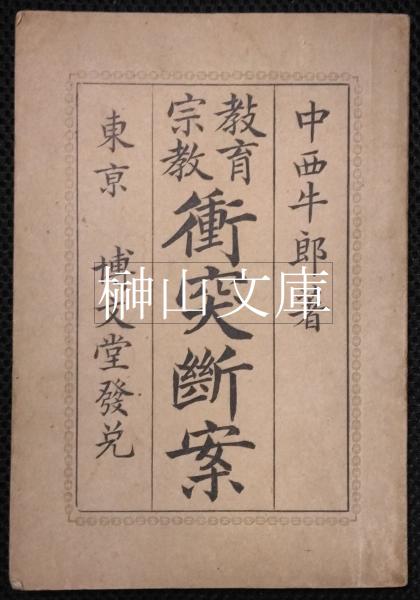 中西牛郎著
教育
宗教
衝突斷案
東京 博文堂發兌
榊山文庫